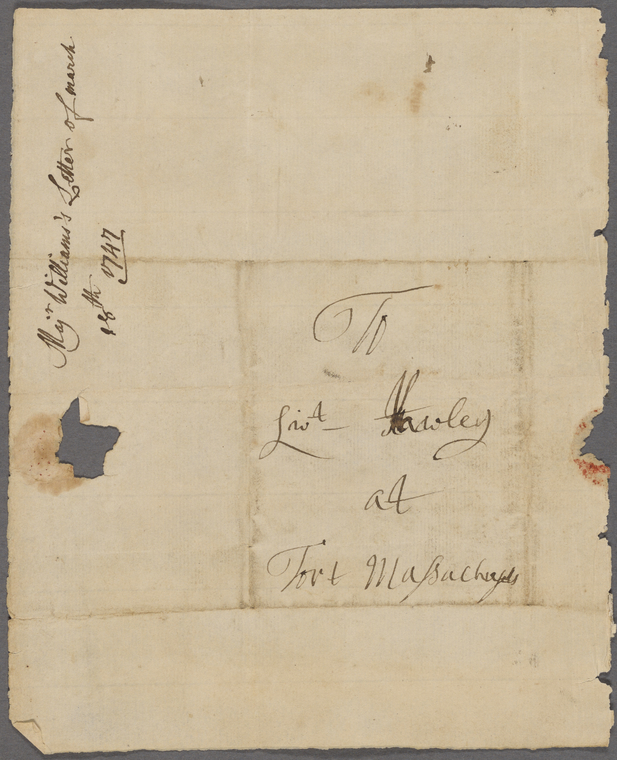 Majr Williams's Letter of march
18th 1747
To
Livt Hawley
at
Fort Massachusets